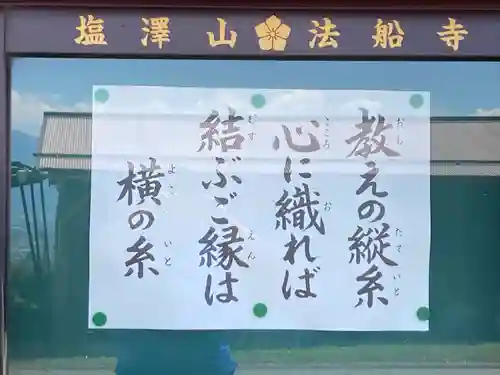 塩澤山 法船寺
教えの縦糸
心に織れば
結ぶご縁は
横の糸